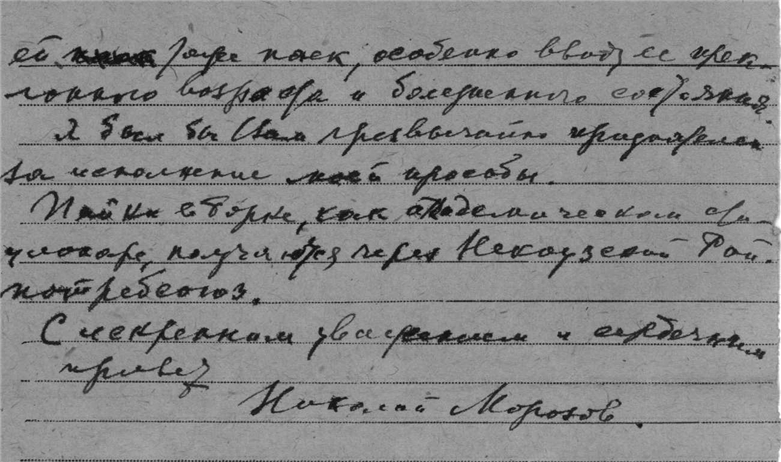 ей даже паек, особенно ввиду ее прек-
лонного возраста и болезненного состояния.
Я был бы Вам чрезвычайно признателен
за исполнение моей просьбы.
Пайки в Борке, как академическом
получаются через Некоузский Рай-
потребсоюз.
С искренним уважением и сердечным
привет
Николай Морозов.